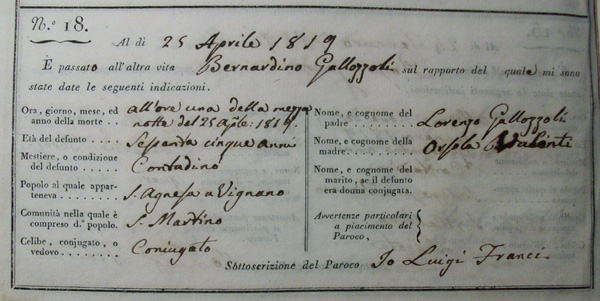 N.º 18.
Al dì 25 Aprile 1819
È passato all'altra vita Bernardino Gallozzoli sul rapporto del quale mi sono
state date le seguenti indicazioni.
Ora, giorno, mese, ed
anno della morte . .
all'ore una della mezza
notte del 25 Aple: 1819.
Età del defunto . . . . .
Sessanta cinque anni
Mestiere, o condizione
del defunto . . . . .
Contadino
Popolo al quale appar-
teneva . . . . . . .
S. Agnesa a Vignano
Comunità nella quale è
compreso d.º popolo.
S. Martino
Celibe, conjugato, o
vedovo . . . . . . .
Coniugato
Nome, e cognome del
padre . . . . . . .
Lorenzo Gallozzoli
Nome, e cognome della
madre . . . . . . .
Orsola
Nome, e cognome del
marito, se il defunto
era donna conjugata.
Avvertenze particolari
a piacimento del
Paroco.
Sottoscrizione del Paroco Io Luigi Franci